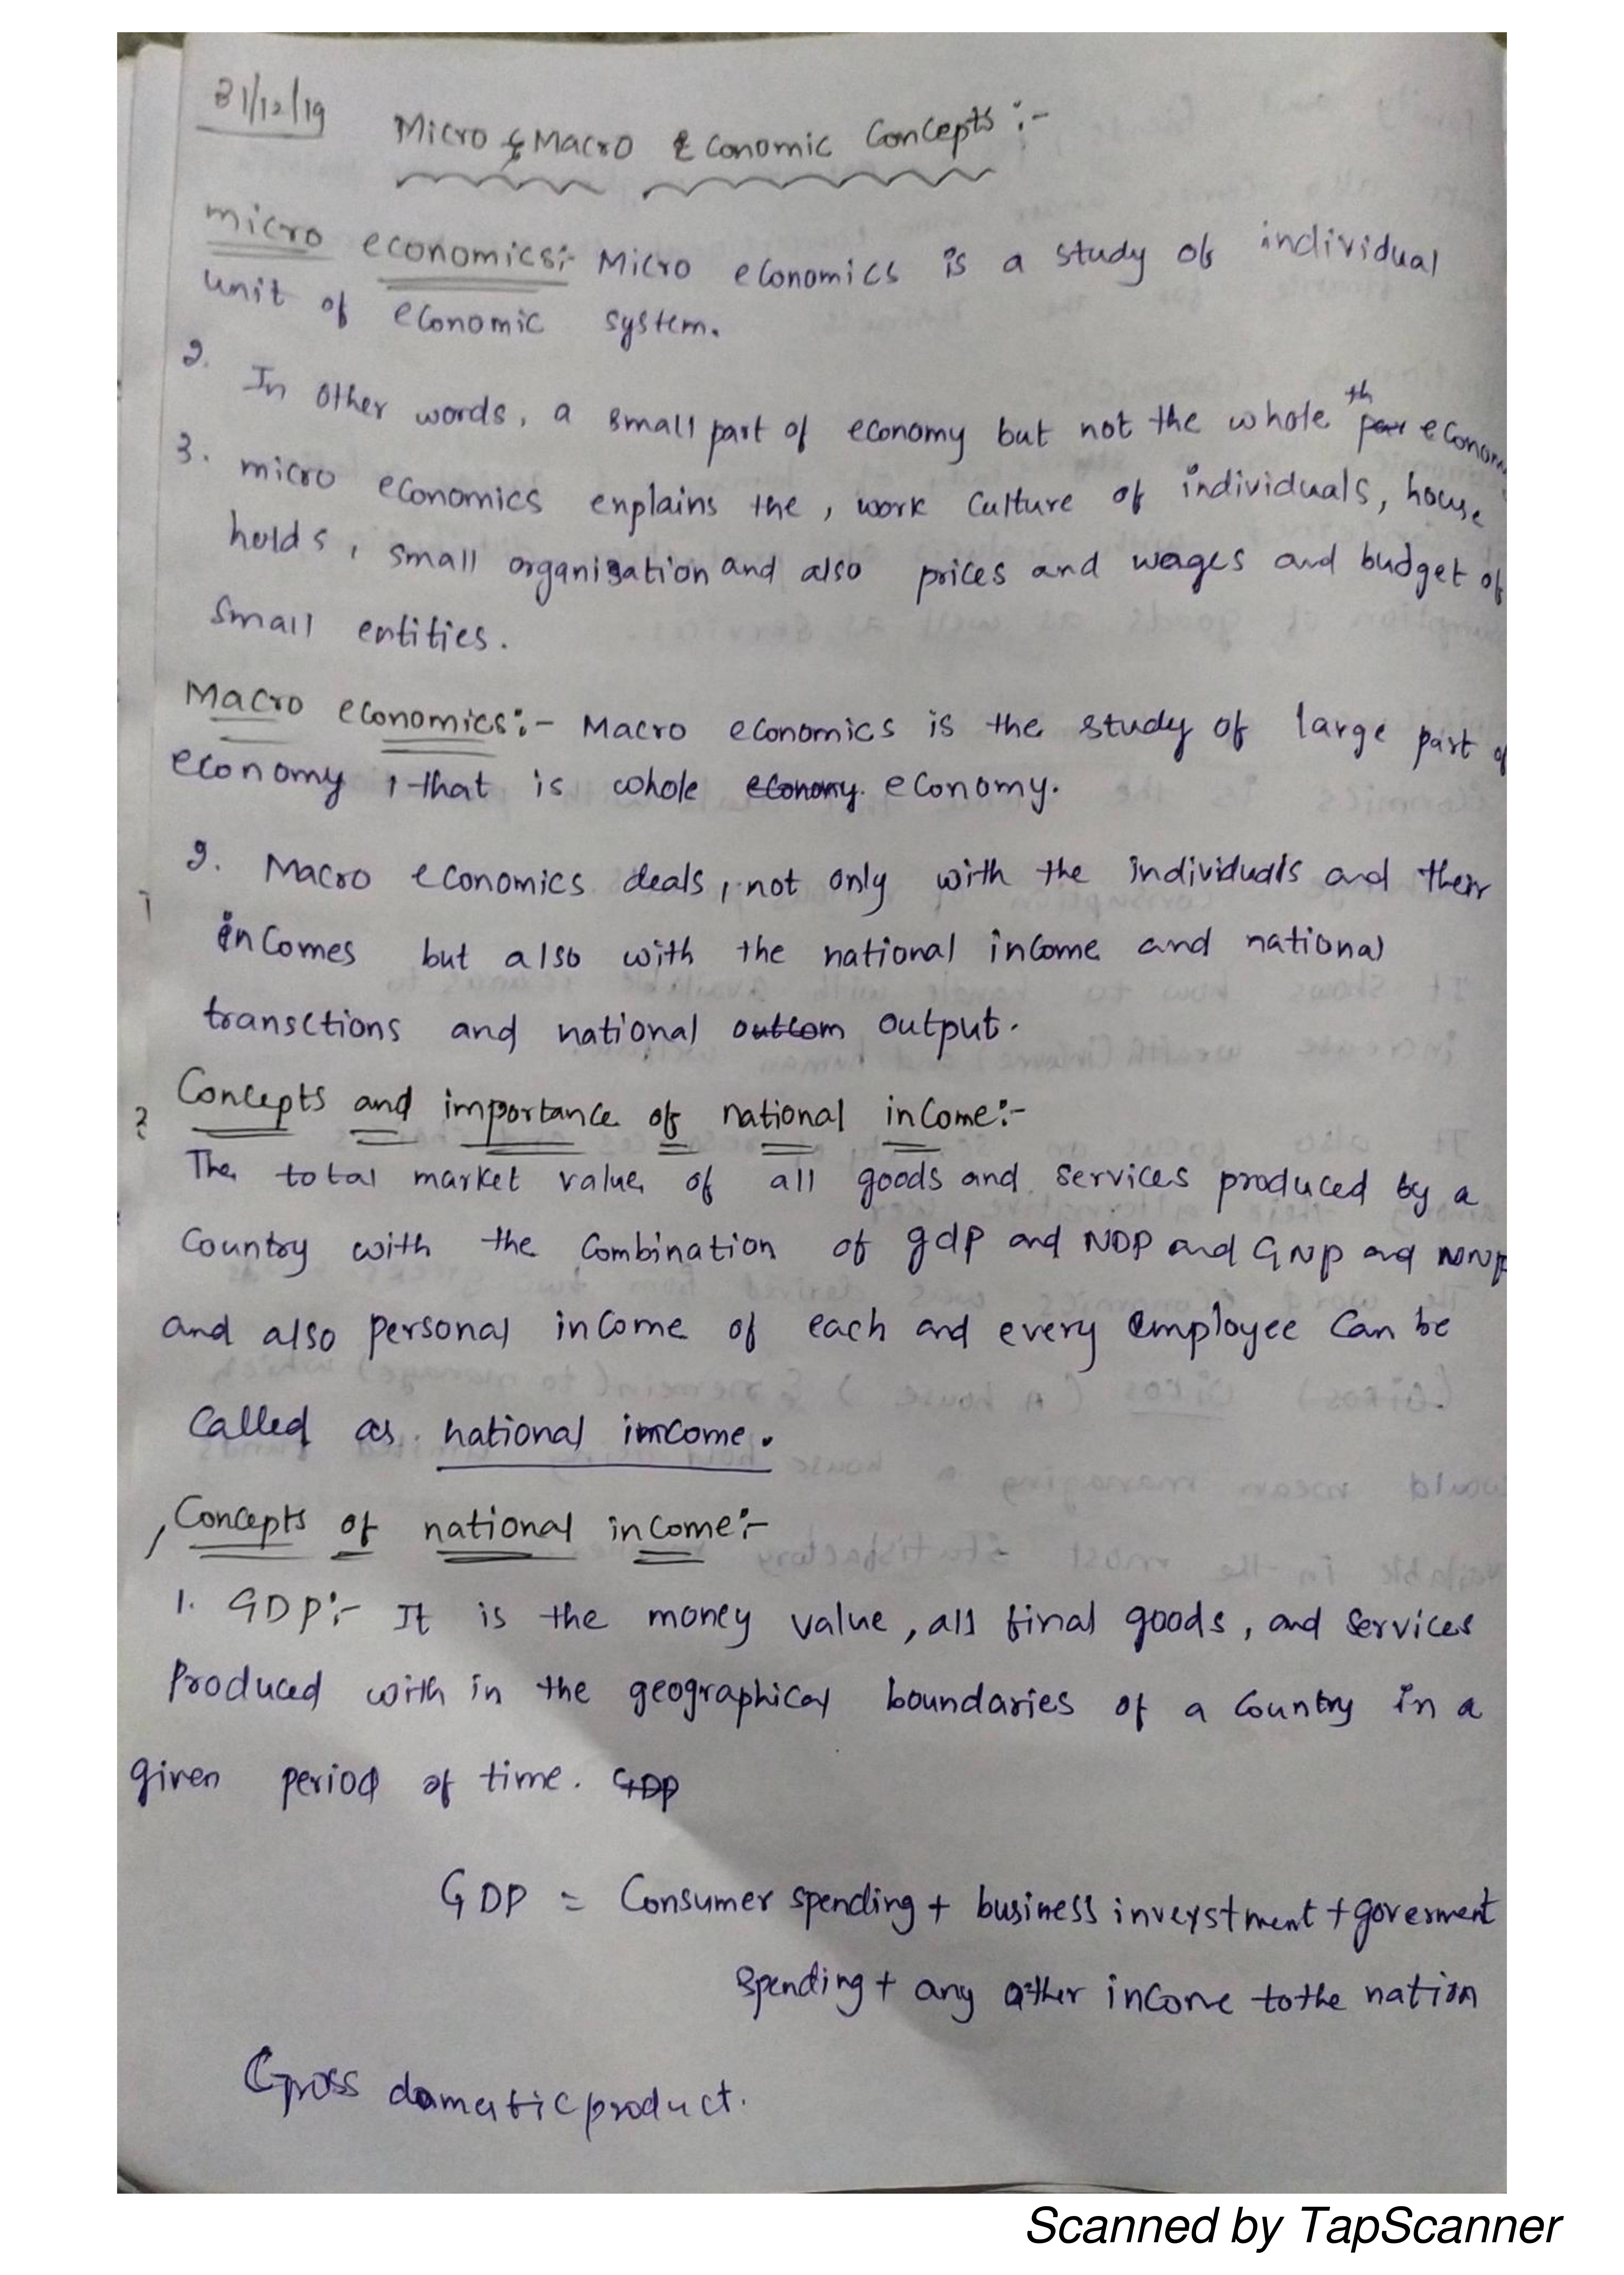 31/12/19
Micro & Macro Economic Concepts :-
micro economics:- Micro economics is a study of individual
unit of economic system.
2. In other words, a small part of economy but not the whole th par econom
3. micro economics explains the, work culture of individuals, house
holds, small organisation and also prices and wages and budget of
small entities.
Macro economics:- Macro economics is the study of large part of
economy, that is whole economy. economy.
2. Macro economics deals, not only with the individuals and their
incomes but also with the national income and national
transctions and national outcom output.
Concepts and importance of national income:-
The total market value of all goods and services produced by a
country with the combination of gdp and NDP and GNP and NNP
and also personal income of each and every employee can be
called as national imcome.
Concepts of national income:-
1. GDP:- It is the money value, all final goods, and services
Produced with in the geographical boundaries of a country in a
given period of time. GDP
GDP = Consumer spending + business inveystment + goverment
spending + any other income to the nation
Gross damestic product.
Scanned by TapScanner